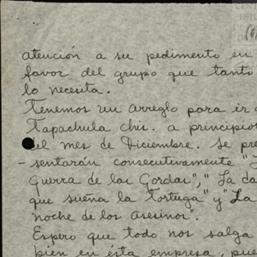 atención a su pedimento en
favor del grupo que tanto
lo necesita.
Tenemos un arreglo para ir a
Tapachula Chis. a principio
del mes de Diciembre. Se pre
- sentarán consecutivamente "L
Guerra de las Gordas", "La da
que sueña la tortuga" y "La
noche de los asesinos".
Espero que todo nos salga
bien en esta empresa, pue